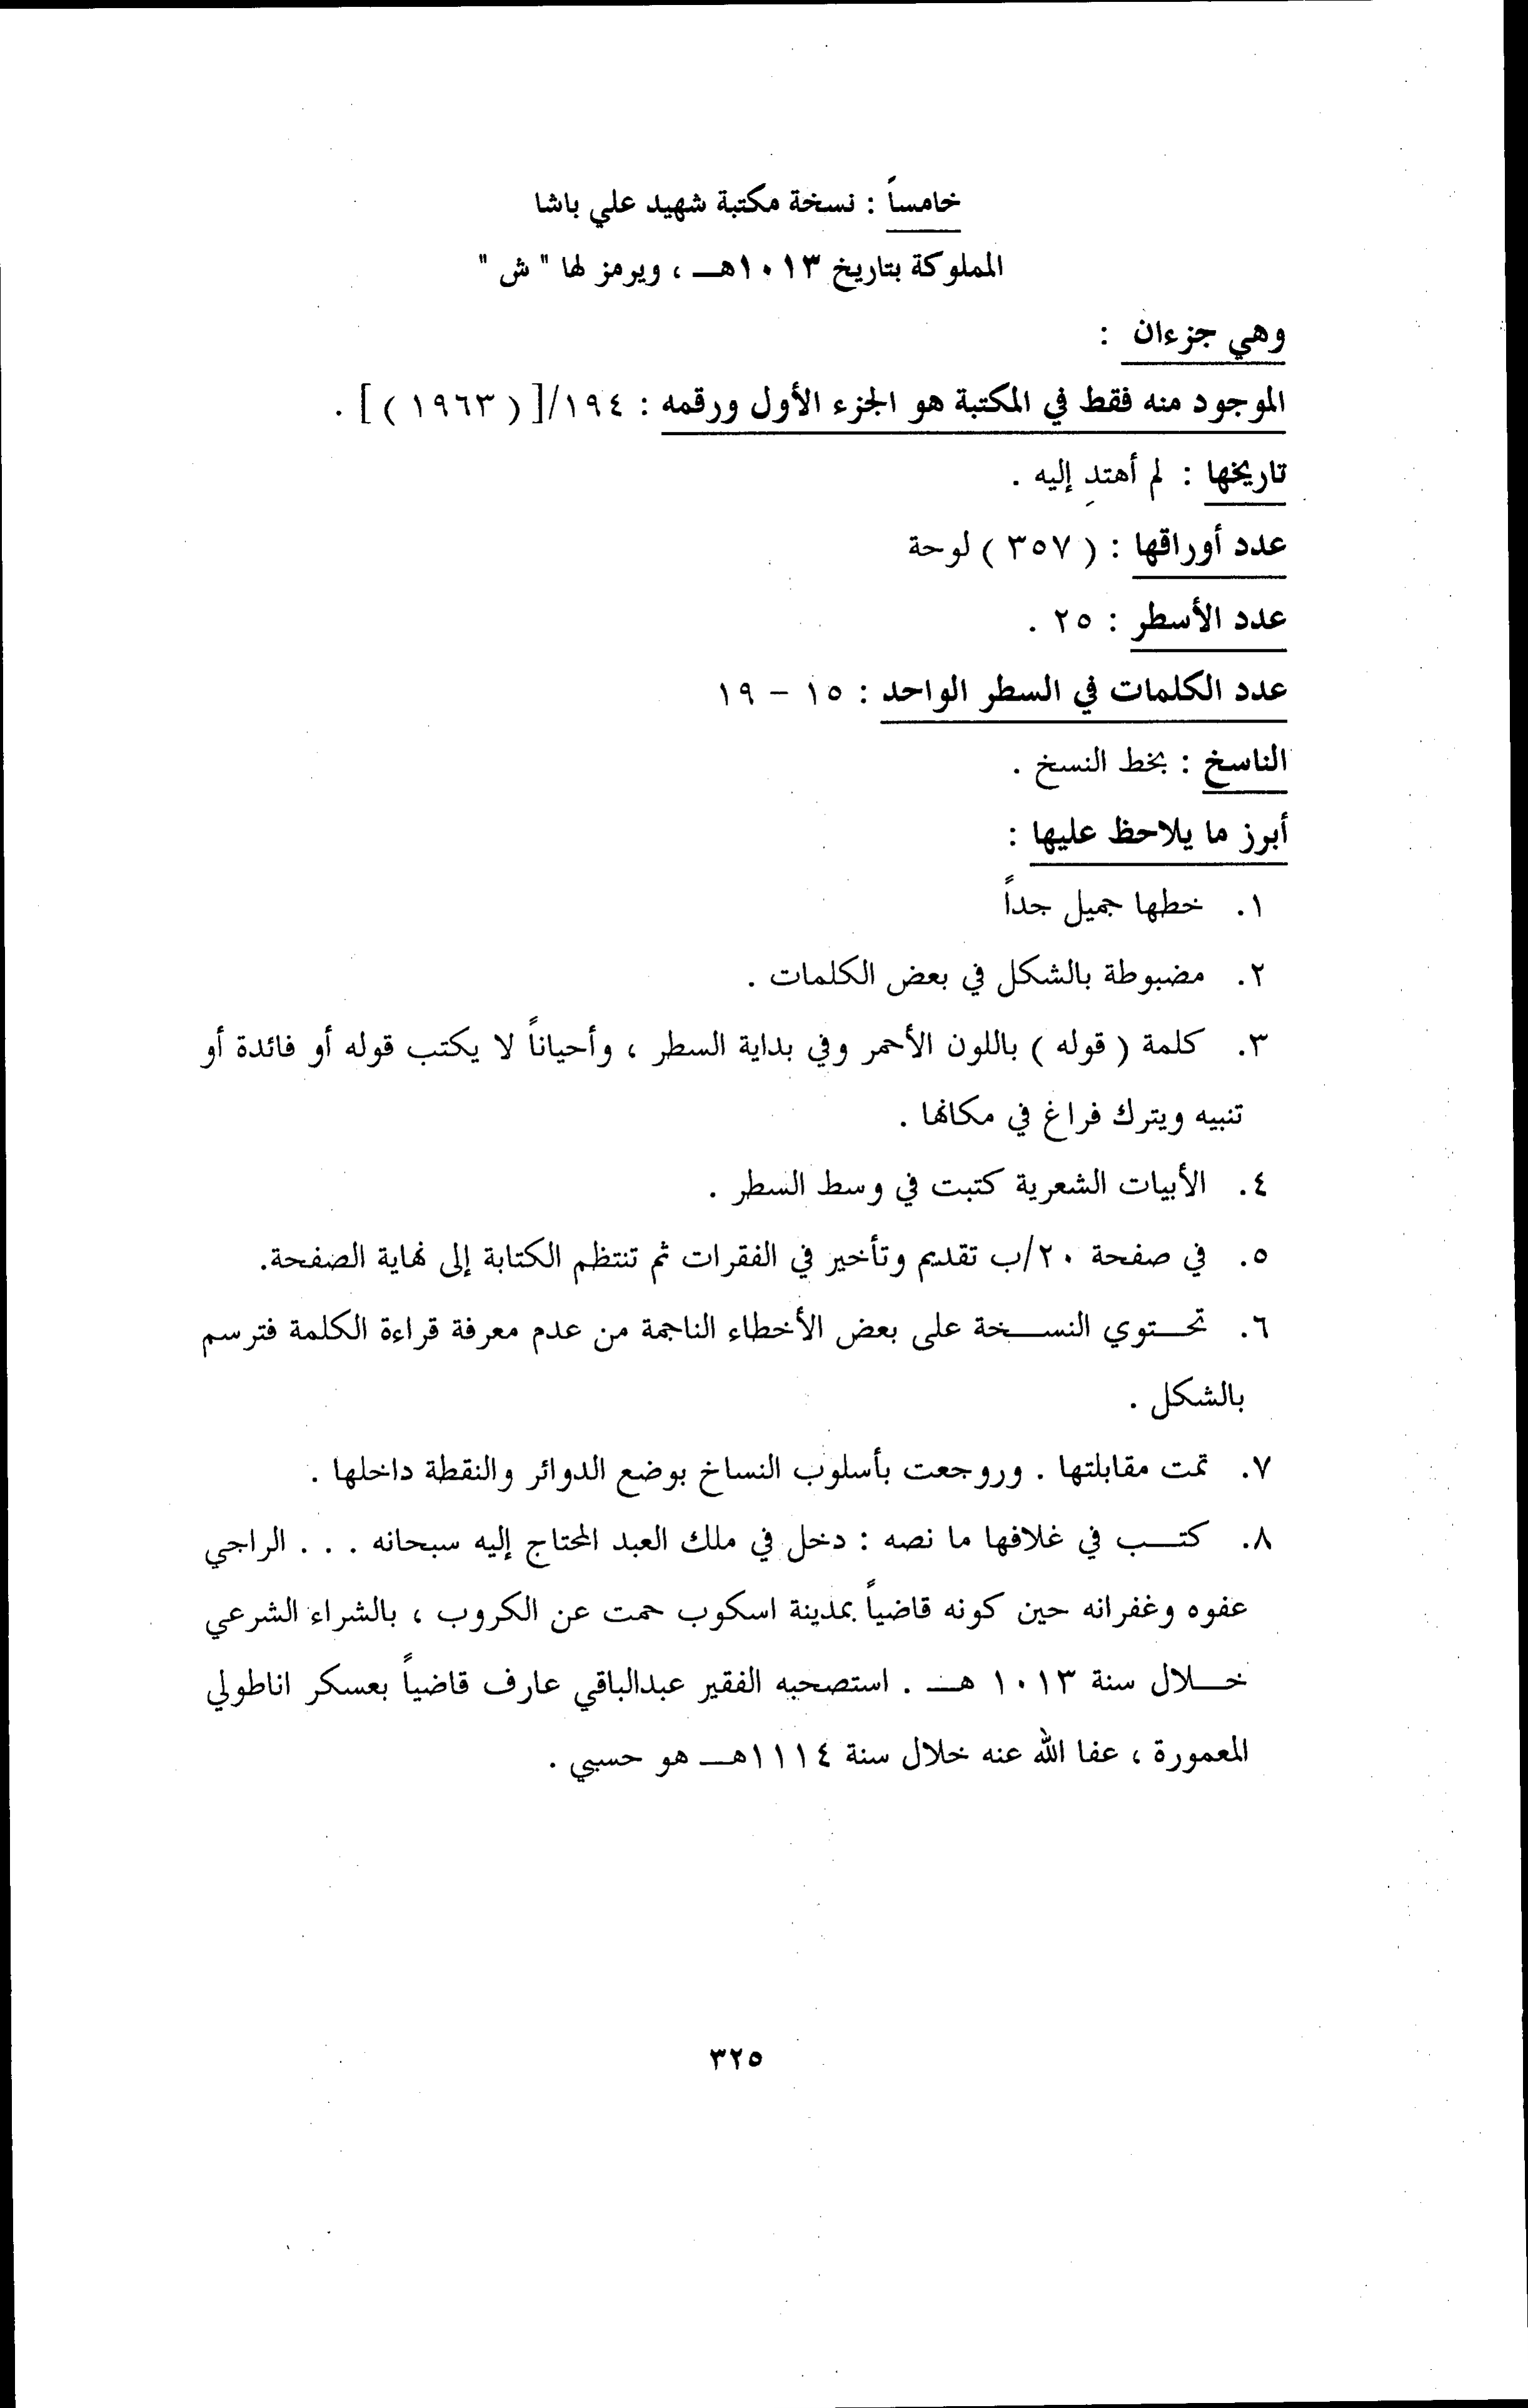 خامساً : نسخة مكتبة شهيد علي باشا
المملوكة بتاريخ ١٠١٣هـ ، ويرمز لها " ش "
وهي جزءان :
الموجود منه فقط في المكتبة هو الجزء الأول ورقمه : ١٩٤/[ ( ١٩٦٣ ) ] .
تاريخها : لم أهتدِ إليه .
عدد أوراقها : ( ٣٥٧ ) لوحة
عدد الأسطر : ٢٥ .
عدد الكلمات في السطر الواحد : ١٥ – ١٩
الناسخ : بخط النسخ .
أبرز ما يلاحظ عليها :
١. خطها جميل جداً
٢. مضبوطة بالشكل في بعض الكلمات .
٣. كلمة ( قوله ) باللون الأحمر وفي بداية السطر ، وأحياناً لا يكتب قوله أو فائدة أو
تنبيه ويترك فراغ في مكانها .
٤. الأبيات الشعرية كتبت في وسط السطر .
٥. في صفحة ٢٠/ب تقديم وتأخير في الفقرات ثم تنتظم الكتابة إلى نهاية الصفحة.
٦. تحـتوي النسـخة على بعض الأخطاء الناجمة من عدم معرفة قراءة الكلمة فترسم
بالشكل .
٧. تمت مقابلتها . وروجعت بأسلوب النساخ بوضع الدوائر والنقطة داخلها .
٨. كتـب في غلافها ما نصه : دخل في ملك العبد المحتاج إليه سبحانه . . . الراجي
عفوه وغفرانه حين كونه قاضياً بمدينة اسكوب حمت عن الكروب ، بالشراء الشرعي
خـلال سنة ١٠١٣ هـ . استصحبه الفقير عبدالباقي عارف قاضياً بعسكر اناطولي
المعمورة ، عفا الله عنه خلال سنة ١١١٤هـ هو حسبي .
٣٢٥